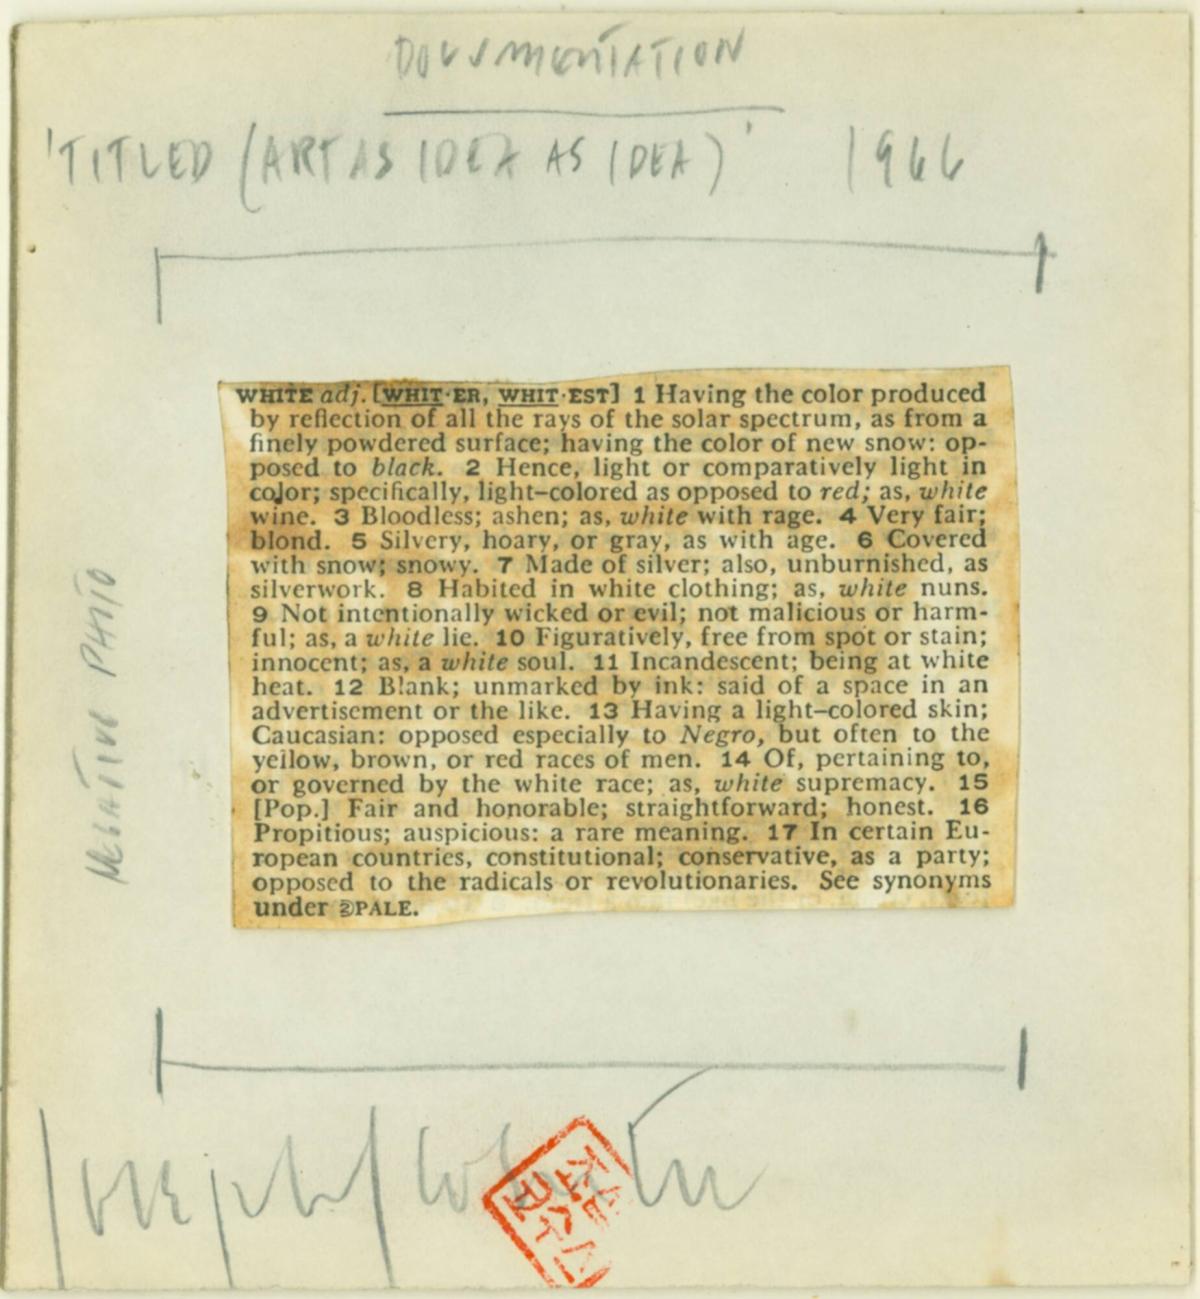 DOCUMENTATION
'TITLED (ART AS IDEA AS IDEA)' 1966
WHITE adj. [WHIT·ER, WHIT·EST] 1 Having the color produced
by reflection of all the rays of the solar spectrum, as from a
finely powdered surface; having the color of new snow: op-
posed to black. 2 Hence, light or comparatively light in
color; specifically, light–colored as opposed to red; as, white
wine. 3 Bloodless; ashen; as, white with rage. 4 Very fair;
blond. 5 Silvery, hoary, or gray, as with age. 6 Covered
with snow; snowy. 7 Made of silver; also, unburnished, as
silverwork. 8 Habited in white clothing; as, white nuns.
9 Not intentionally wicked or evil; not malicious or harm-
ful; as, a white lie. 10 Figuratively, free from spot or stain;
innocent; as, a white soul. 11 Incandescent; being at white
heat. 12 Blank; unmarked by ink: said of a space in an
advertisement or the like. 13 Having a light–colored skin;
Caucasian: opposed especially to Negro, but often to the
yellow, brown, or red races of men. 14 Of, pertaining to,
or governed by the white race; as, white supremacy. 15
[Pop.] Fair and honorable; straightforward; honest. 16
Propitious; auspicious: a rare meaning. 17 In certain Eu-
ropean countries, constitutional; conservative, as a party;
opposed to the radicals or revolutionaries. See synonyms
under ②PALE.
NEGATIVE PHOTO
Joseph Kosuth